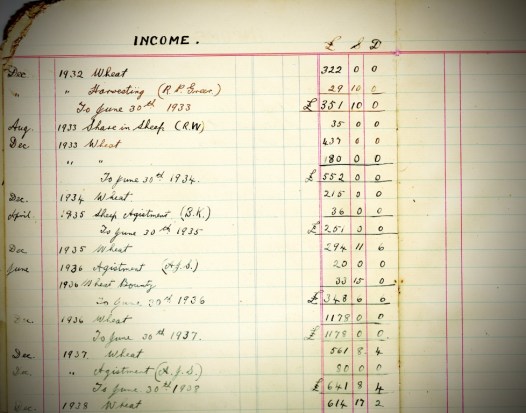 INCOME.
£ S D
Dec 1932 Wheat 322 0 0
" " Harvesting (R.P. 29 10 0
To June 30th 1933 £ 351 10 0
Aug. 1933 Share in Sheep (R.W) 35 0 0
Dec 1933 Wheat 437 0 0
" " 180 0 0
To June 30th 1934. £ 552 0 0
Dec. 1934 Wheat. 215 0 0
April. 1935 Sheep Agistment (B.K.) 36 0 0
To June 30th 1935 £ 251 0 0
Dec 1935 Wheat 294 11 6
June 1936 Agistment (A.J.S.) 20 0 0
1936 Wheat Bounty 33 15 0
To June 30th 1936 £ 348 6 0
Dec. 1936 Wheat 1178 0 0
To June 30th 1937. £ 1178 0 0
Dec. 1937. Wheat 561 8 4
Dec " Agistment (A.J.S.) 80 0 0
To June 30th 1938 £ 641 8 4
Dec. 1938 Wheat 614 17 2